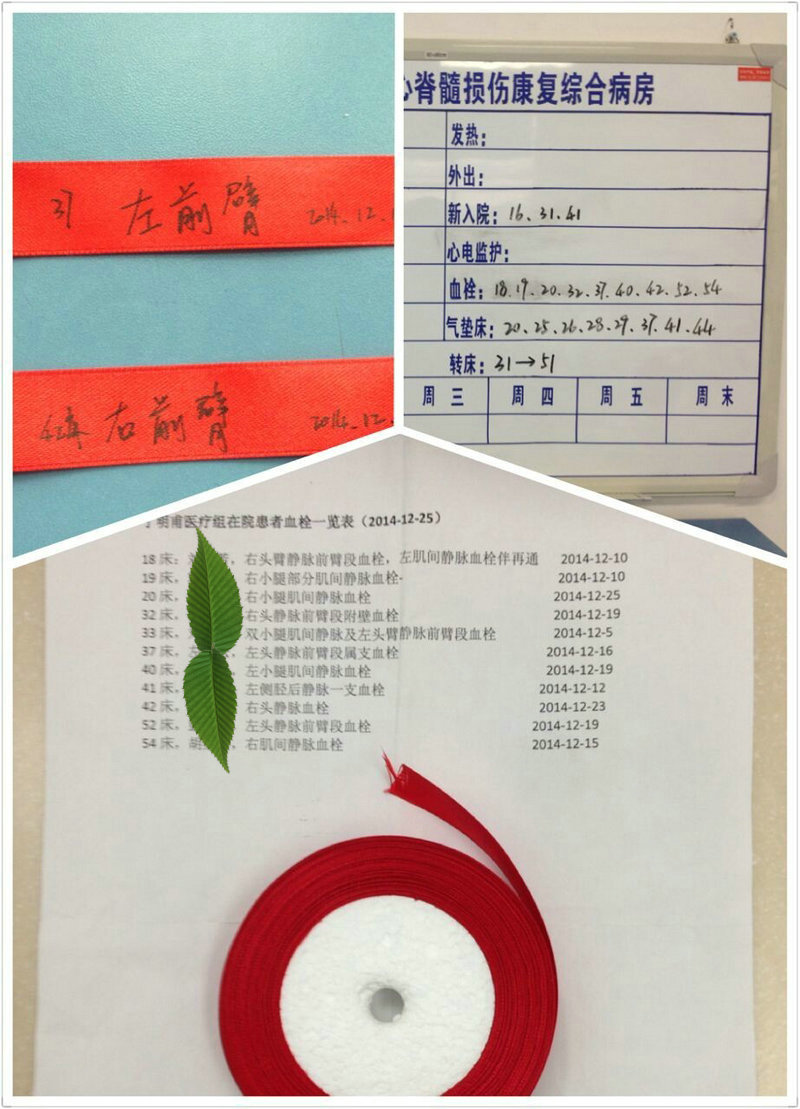 37 左前臂 2014.12.
右前臂 2014.12.
心脊髓损伤康复综合病房
发热：
外出：
新入院：16、31、41
心电监护：
血栓：18、19、20、32、37、40、42、52、54
气垫床：20、25、26、28、29、37、41、44
转床：31→51
周三 周四 周五 周末
明甫医疗组在院患者血栓一览表（2014-12-25）
18床： 右头臂静脉前臂段血栓，左肌间静脉血栓伴再通 2014-12-10
19床， 右小腿部分肌间静脉血栓- 2014-12-10
20床， 右小腿肌间静脉血栓 2014-12-25
32床， 右头静脉前臂段附壁血栓 2014-12-19
33床， 双小腿肌间静脉及左头臂静脉前臂段血栓 2014-12-5
37床， 左头静脉前臂段属支血栓 2014-12-16
40床， 左小腿肌间静脉血栓 2014-12-19
41床， 左侧胫后静脉一支血栓 2014-12-12
42床， 右头静脉血栓 2014-12-23
52床， 左头静脉前臂段血栓 2014-12-19
54床， 右肌间静脉血栓 2014-12-15